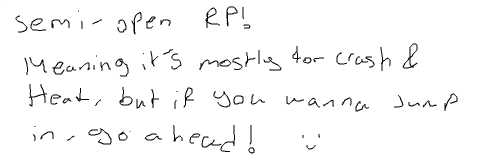 semi-open RP!
Meaning it's mostly for Crash &
Heat, but if you wanna jump
in, go ahead! :)